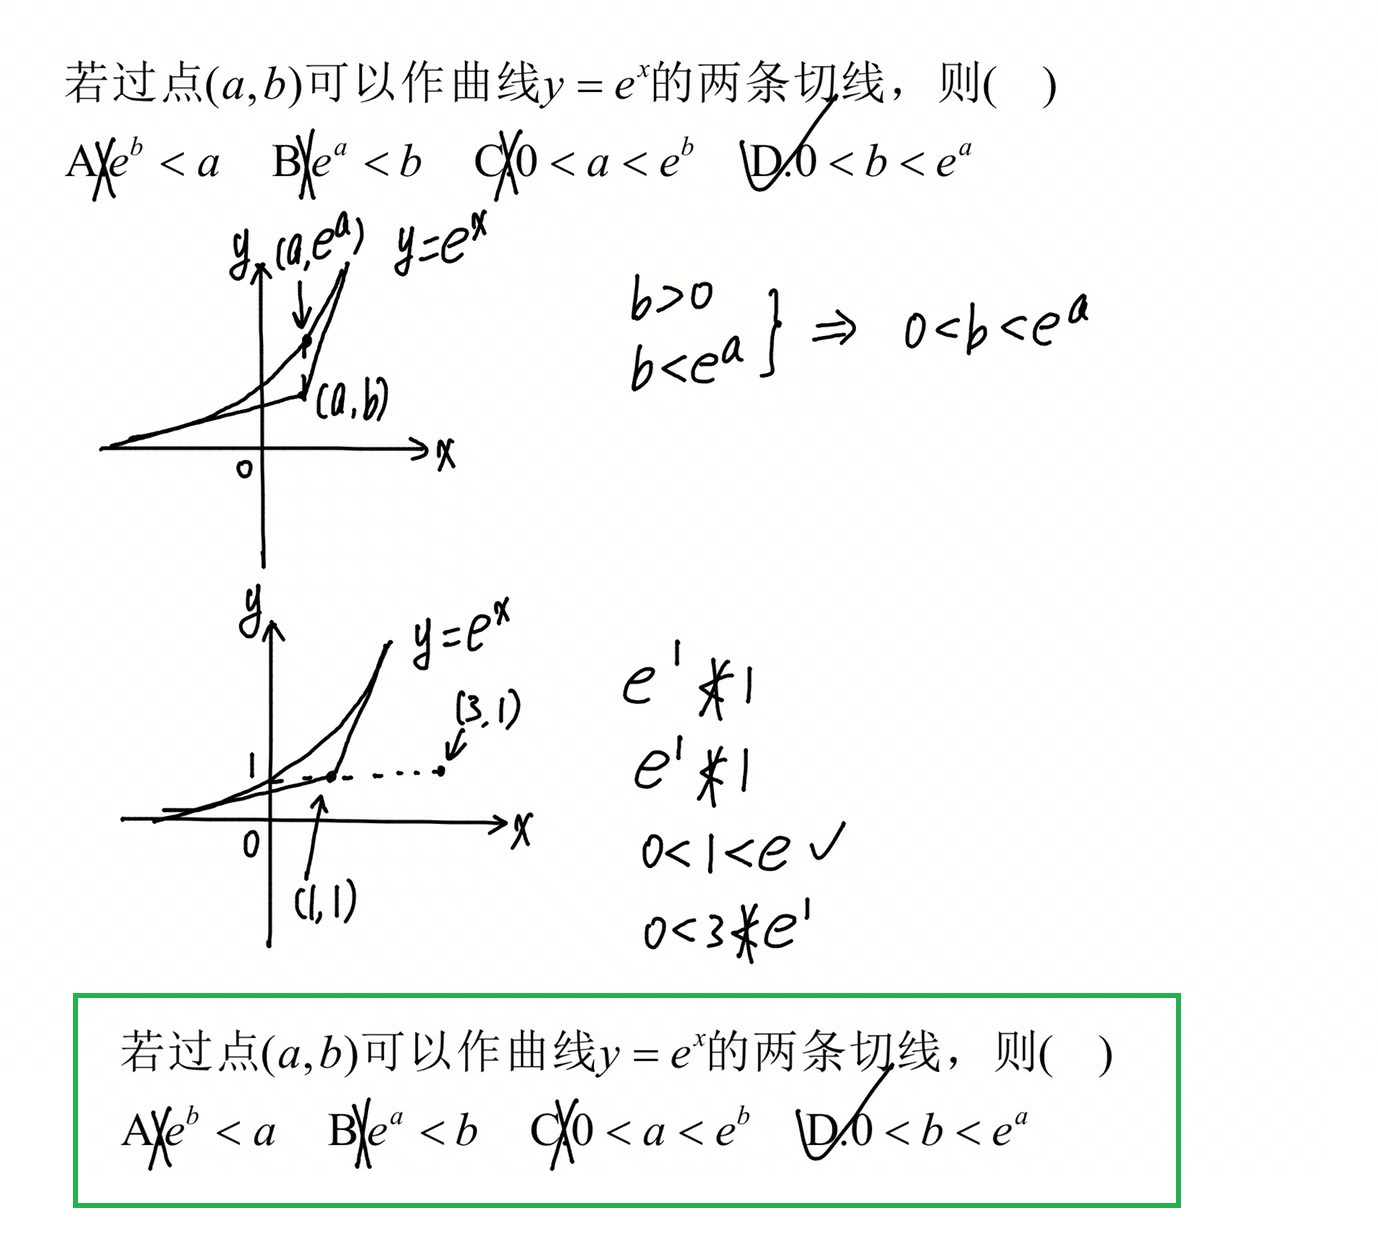 若过点(a,b)可以作曲线y = eˣ的两条切线，则(   )
A.eᵇ < a   B.eᵃ < b   C.0 < a < eᵇ   D.0 < b < eᵃ
y (a,eᵃ) y=eˣ
b>0
b<eᵃ } ⇒ 0<b<eᵃ
(a,b)
0 x
y y=eˣ
(3,1)
1
0 x
(1,1)
e¹≮1
e¹≮1
0<1<e✓
0<3≮e¹
若过点(a,b)可以作曲线y = eˣ的两条切线，则(   )
A.eᵇ < a   B.eᵃ < b   C.0 < a < eᵇ   D.0 < b < eᵃ